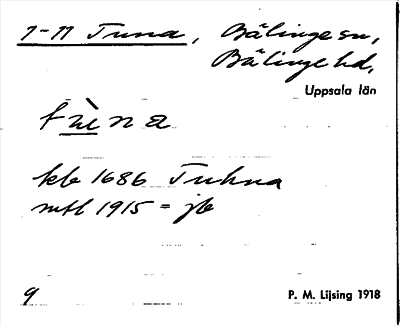 7-11 Tuna, Bälinge sn,
Bälinge hd,
Uppsala län
kb 1686 Tuhna
mtl 1915 = jb
9
P. M. Lijsing 1918